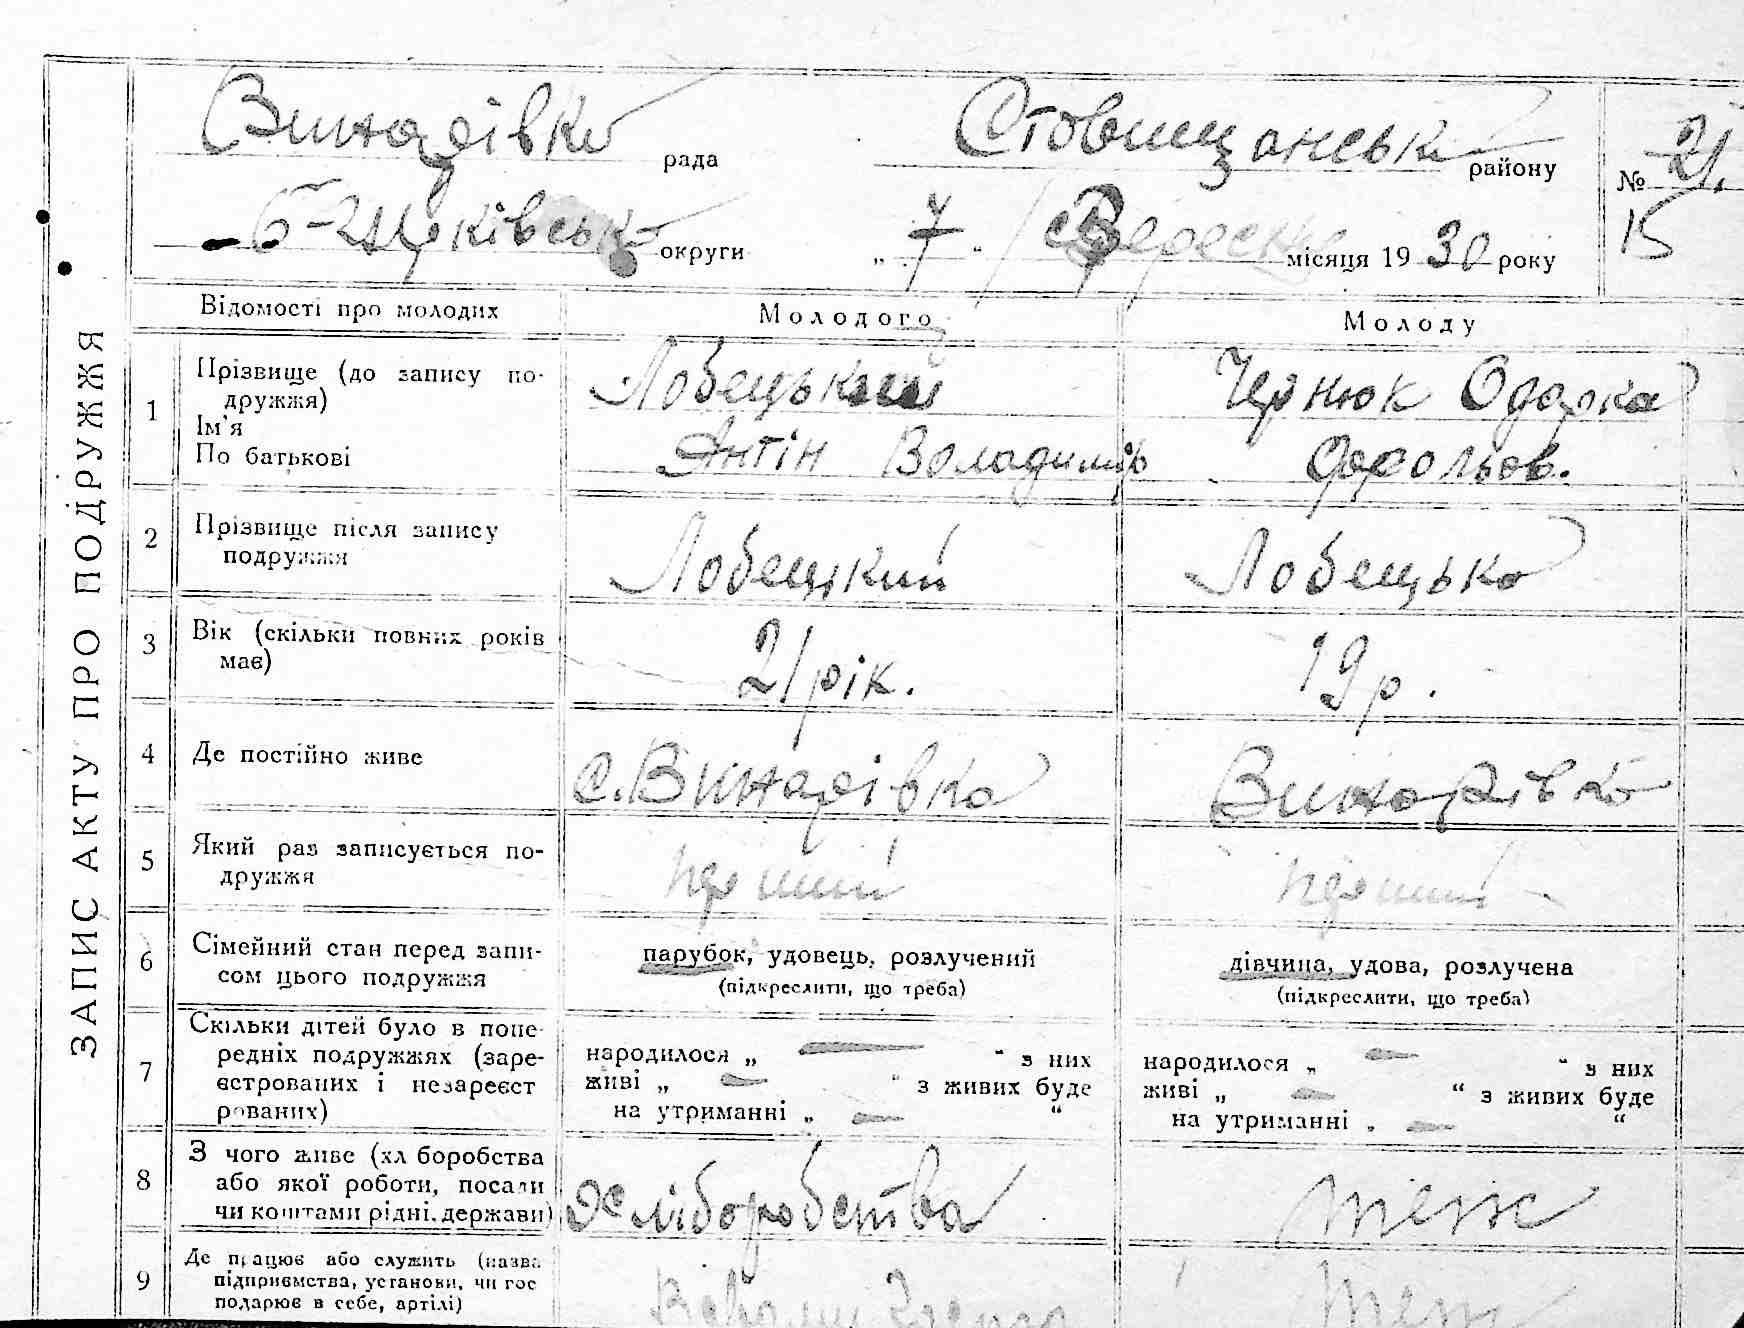 Винарівка рада Ставищанськ району № 21.
Б-Церківськ округи „ 7 " Вересня місяця 19 30 року 15
ЗАПИС АКТУ ПРО ПОДРУЖЖЯ
Відомості про молодих Молодого Молоду
1 Прізвище (до запису по-
дружжя) Лобецький Чернюк Одарка
Ім'я
По батькові Антін Володимир
2 Прізвище після запису
подружжя Лобецкий Лобецька
3 Вік (скільки повних років
має) 21 рік. 19 р.
4 Де постійно живе с. Винарівка Винарівка
5 Який раз записується по-
дружжя перший перший
6 Сімейний стан перед запи-
сом цього подружжя парубок, удовець, розлучений дівчина, удова, розлучена
(підкреслити, що треба) (підкреслити, що треба)
7 Скільки дітей було в попе-
редніх подружжях (заре-
єстрованих і незареєст
рованих)
народилося „ — " з них
живі „ — " з живих буде
на утриманні „ — "
народилося „ — " з них
живі „ — " з живих буде
на утриманні „ — "
8 З чого живе (хл боробства
або якої роботи, посади
чи коштами рідні, держави) Хліборобства теж
9 Де працює або служить (назва
підприємства, установи, чи гос
подарює в себе, артілі) теж